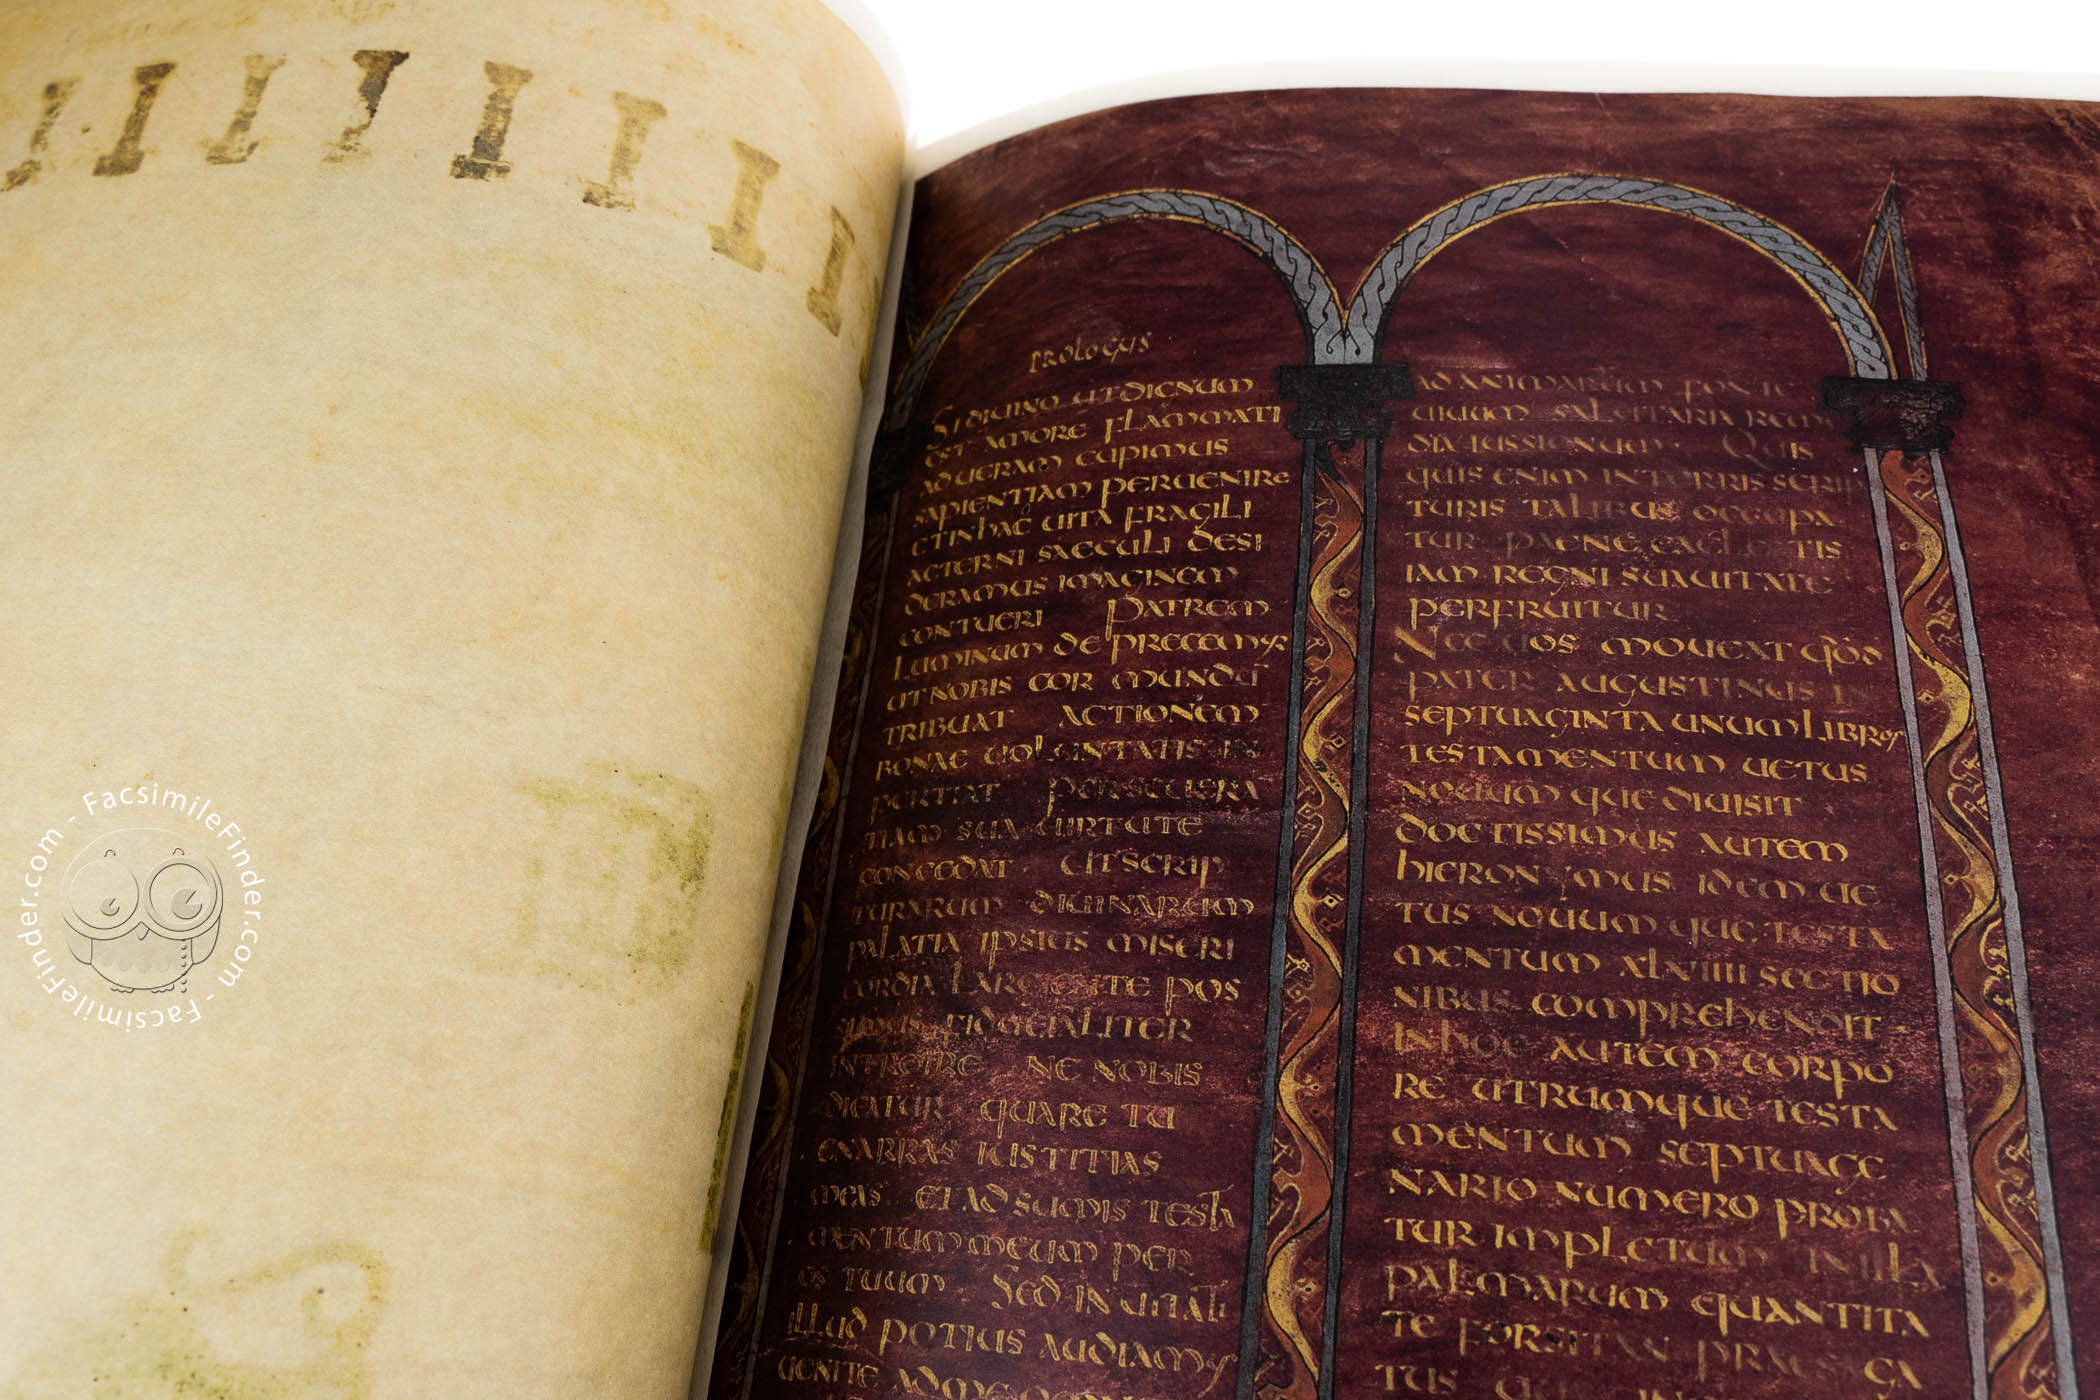 PROLOGUS
SI DIUINO UT DIGNUM
EST AMORE FLAMMATI
AD UERAM CUPIMUS
SAPIENTIAM PERUENIRE
ET IN HAC UITA FRAGILI
AETERNI SAECULI DESI
DERAMUS IMAGINEM
CONTUERI PATREM
LUMINUM DEPRECEMUR
UT NOBIS COR MUNDŪ
TRIBUAT ACTIONEM
BONAE UOLUNTATIS IN
PERTIAT PERSEUERA
TIAM SUA UIRTUTE
CONCEDAT UT SCRIP
TURARUM DIUINARUM
PALATIA IPSIUS MISERI
CORDIA LARGIENTE POS
SIMUS FIDUCIALITER
INTROIRE NE NOBIS
DICATUR QUARE TU
ENARRAS IUSTITIAS
MEAS ET ADSUMIS TESTA
MENTUM MEUM PER
OS TUUM SED INUITATI
ILLUD POTIUS AUDIAMUS
UENITE AD ME
AD ANIMARUM FONTE
UIUUM SALUTARIA REME
DIA IUSSIONUM QUIS
QUIS ENIM IN TERRIS SCRIP
TURIS TALIBUS OCCUPA
TUR PAENE CAELESTIS
IAM REGNI SUAUITATE
PERFRUITUR
NEC UOS MOUEAT QUOD
PATER AUGUSTINUS IN
SEPTUAGINTA UNUM LIBROS
TESTAMENTUM UETUS
NOUUMQUE DIUISIT
DOCTISSIMUS AUTEM
HIERONYMUS IDEM UE
TUS NOUUMQUE TESTA
MENTUM XLVIIII SECTIO
NIBUS COMPREHENDIT
IN HOC AUTEM CORPO
RE UTRUMQUE TESTA
MENTUM SEPTUAGE
NARIO NUMERO PROBA
TUR IMPLETUM IN ILLA
PALMARUM QUANTITA
TE FORSITAN PRAESAGA
TUS
FacsimileFinder.com - FacsimileFinder.com -